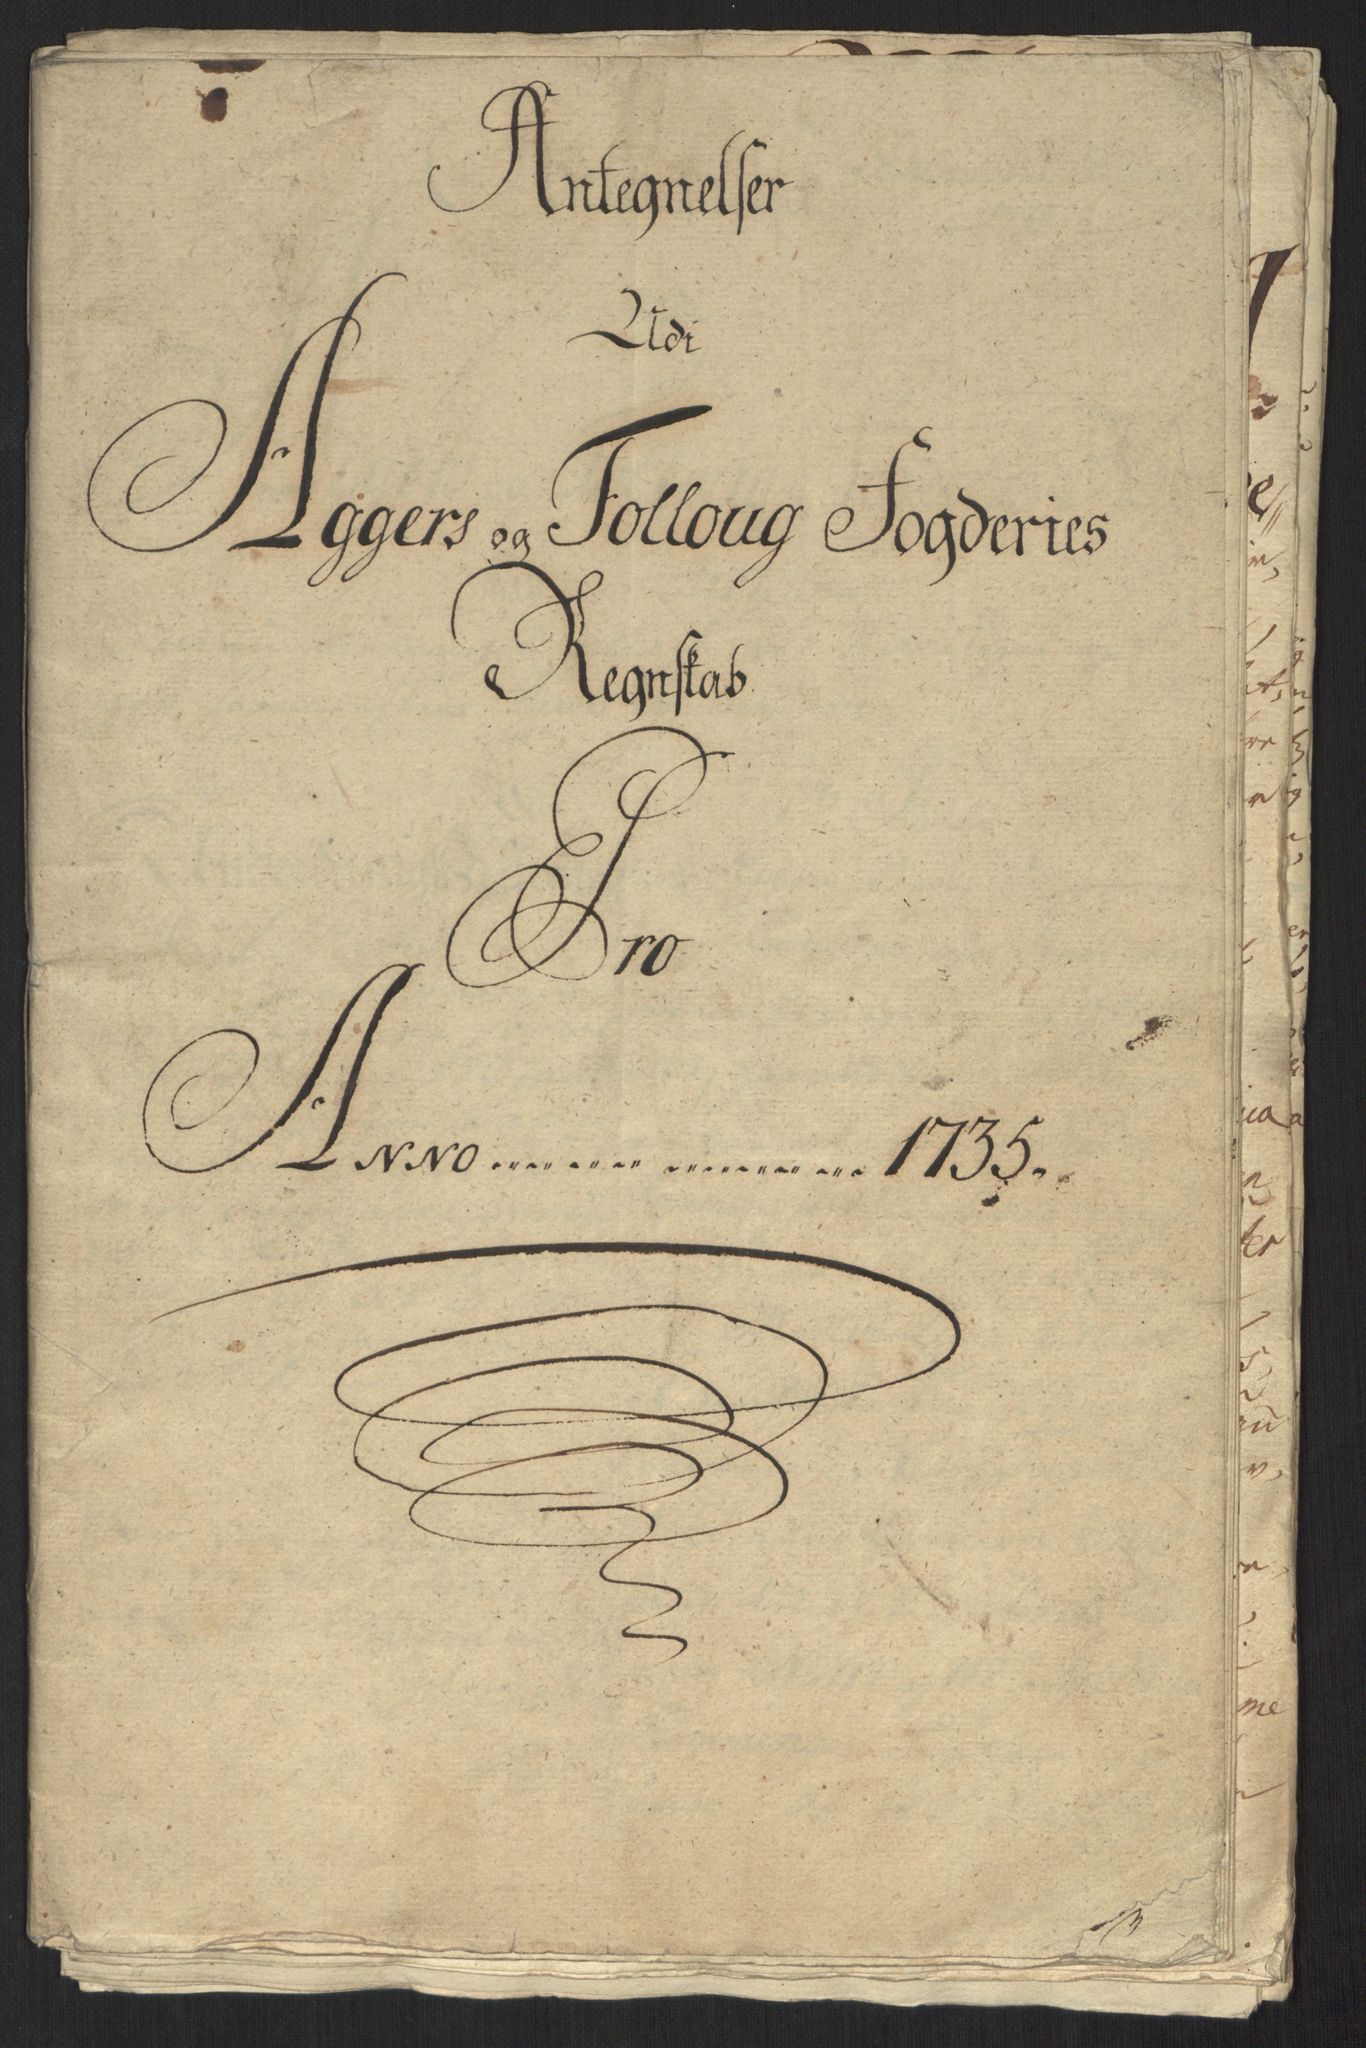 Antegnelser
Udi
Aggers og Folloug Fogderies
Regnskab
Pro
Anno 1735.